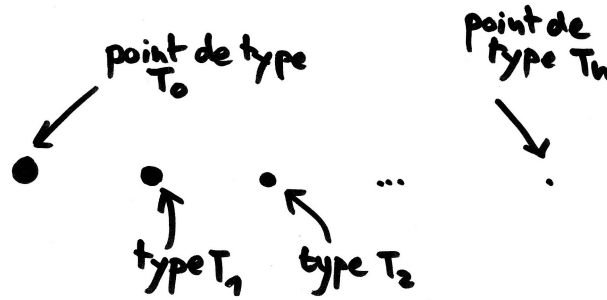 point de type
T₀
point de
type Tₙ
...
type T₁
type T₂